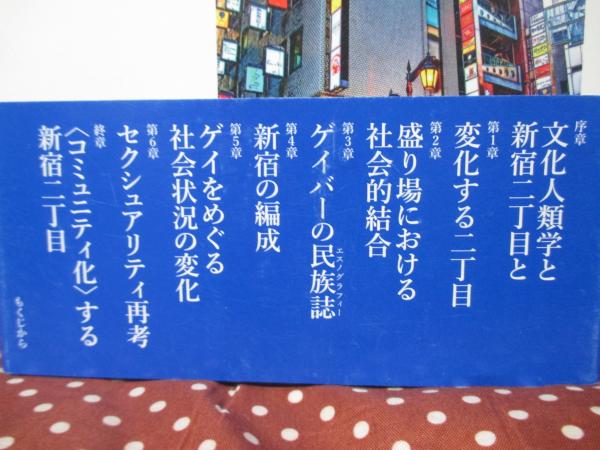 序章
文化人類学と
新宿二丁目と
第1章
変化する二丁目
第2章
盛り場における
社会的結合
第3章
ゲイバーの民族誌
エスノグラフィー
第4章
新宿の編成
第5章
ゲイをめぐる
社会状況の変化
第6章
セクシュアリティ再考
終章
〈コミュニティ化〉する
新宿二丁目
もくじから